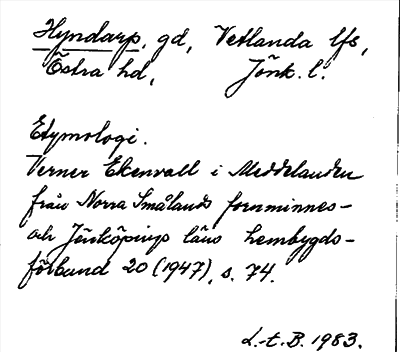 Hyndarp, gd, Vetlanda lfs,
Östra hd, Jönk. l.
Etymologi.
Verner Ekenvall i Meddelanden
från Norra Smålands fornminnes-
och Jönköpings läns hembygds-
förbund 20 (1947), s. 74.
L.-t. B. 1983.